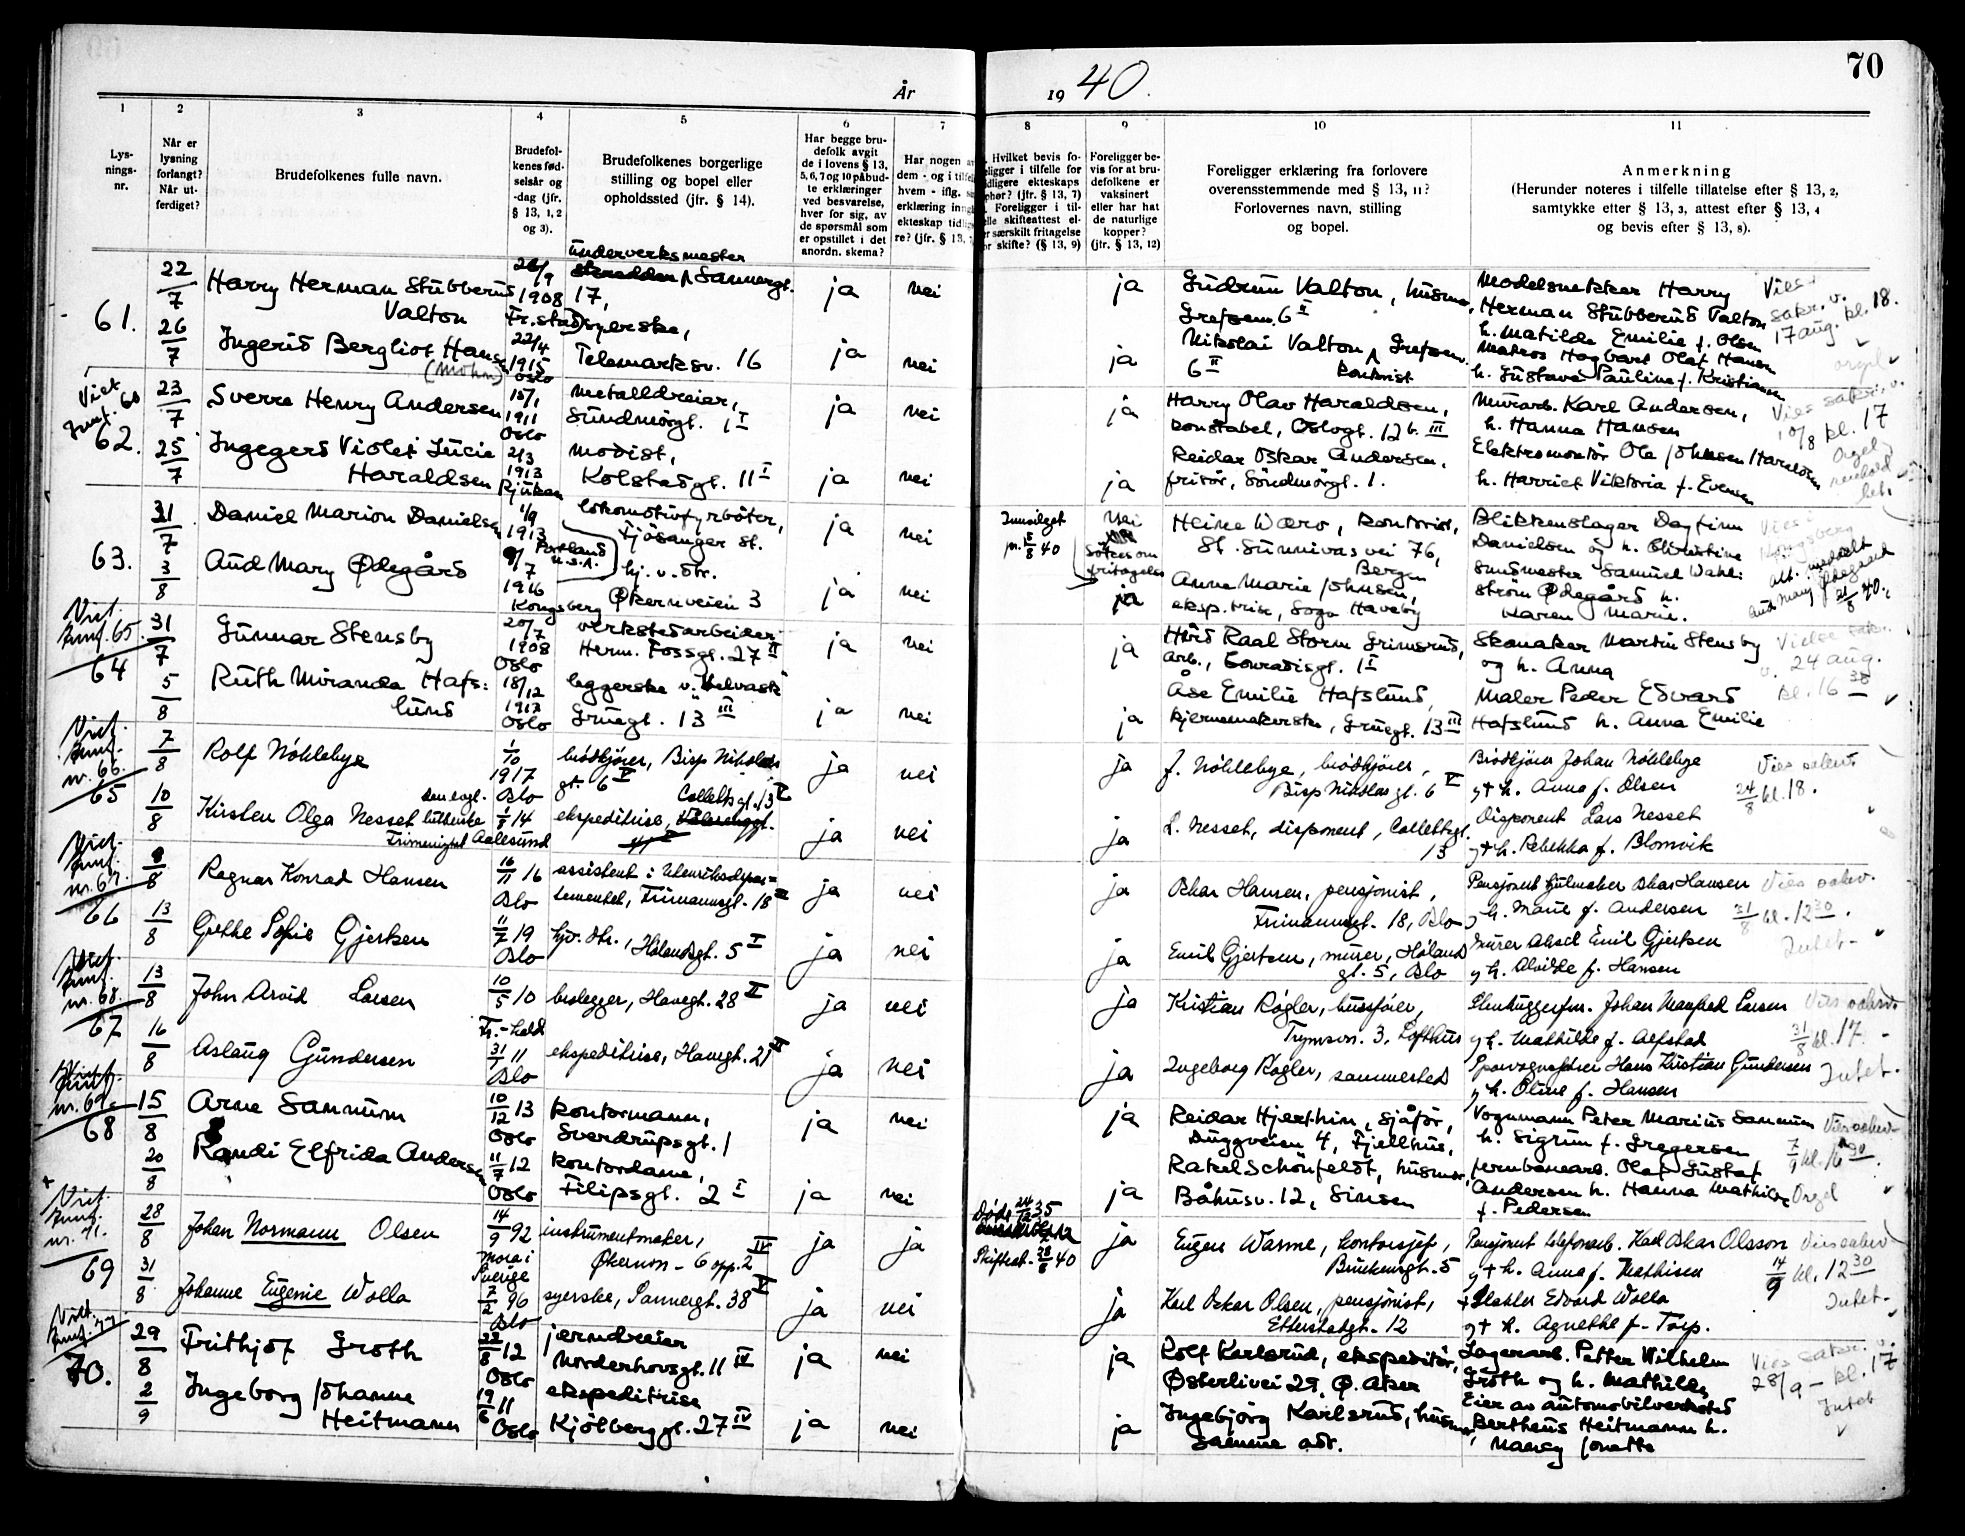 70
År
19 40.
1
2
3
4
5
6
7
8
9
10
11
Lys-
nings-
nr.
Når er
lysning
forlangt?
Når ut-
ferdiget?
Brudefolkenes fulle navn.
Brudefol-
kenes fød-
selsår og
-dag (jfr.
§ 13, 1, 2
og 3).
Brudefolkenes borgerlige
stilling og bopel eller
opholdssted (jfr. § 14).
Har begge bru-
defolk avgit
de i lovens § 13,
5, 6, 7 og 10 påbud-
te erklæringer
ved besvarelse,
hver for sig, av
de spørsmål som
er opstillet i det
anordn. skema?
Har nogen av
dem - og i tilfelle
hvem - iflg.
erklæring inngått
ekteskap tidlige-
re? (jfr. § 13,
Hvilket bevis fo-
religger i tilfelle for
tidligere ekteskaps
ophør? (jfr. § 13, 7)
Foreligger i til-
felle skifteattest el-
ler særskilt fritagelse
for skifte? (§ 13, 9)
Foreligger be-
vis for at bru-
defolkene er
vaksinert
eller har hat
de naturlige
kopper?
(jfr. § 13, 12)
Foreligger erklæring fra forlovere
overensstemmende med § 13, 11?
Forlovernes navn, stilling
og bopel.
Anmerkning
(Herunder noteres i tilfelle tillatelse efter § 13, 2,
samtykke etter § 13, 3, attest efter § 13, 4
og bevis efter § 13, 8).
61.
22/7
26/7
Harry Herman Stubberud
Valton
1908
Fr.stad
underverksmester
Sannergt.
17,
ja
nei
ja
Gudrun Valton, husmor,
Grefsenv. 6 II
Modelsnekker Harry
Herman Stubberud Valton
h. Matilde Emilie f. Olsen
Vies
sakr. v.
17 aug. kl. 18.
Ingerid Bergliot Hansen
(Mohn)
22/4
1915
Oslo
syerske,
Telemarksv. 16
ja
nei
ja
Nikolai Valton, Grefsenv.
6 II kontorist
Matros Hagbart Olaf Hansen
h. Gustava Pauline f. Kristiansen
orgel
Viet
62.
23/7
25/7
Sverre Henry Andersen
1911
Oslo
metalldreier,
Sundmørgt. 1 I
ja
nei
ja
Harry Olav Haraldsen,
konstabel, Oslogt. 12 b. III
Murarb. Karl Andersen,
h. Hanna Hansen
Vies sakr. v.
10/8 kl. 17
Orgel
Ingegerd Violet Lucie
Haraldsen
2/3
1913
Rjukan
modist,
Kolstadgt. 11 I
ja
nei
ja
Reidar Oskar Andersen,
frisør, Söndmörgt. 1.
Elektromontör Ole Johnsen Haraldsen
h. Harriet Viktoria f. Evensen
63.
31/7
3/8
Daniel Marion Danielsen
1/9
1913
Portland
U.S.A.
lokomotivfyrbøter,
Fjösanger st.
ja
nei
Innvilget
pr. 5/8 40
nei
Søkes om
fritagelse
Heine Wærø, kontorist,
St. Sunnivas vei 76,
Bergen
Blikkenslager Dagfinn
Danielsen og h. Christine
Vies i
Kongsberg
Aud Mary Ødegård
1916
Kongsberg
hj. v. str.
Økernveien 3
ja
nei
ja
Anna Marie Johnsen,
eksp.trise, Soga Haveby
Smedmester Samuel Wahl-
strøm Ødegård h.
Karen Marie.
att. meddelt
Aud Mary Ødegaard
21/8 40.
Viet
Kunf. 65.
64
31/7
5/8
Gunnar Stensby
20/7
1908
Oslo
verkstedarbeider
Herm. Fossgt. 27 II
ja
nei
ja
arb., Conradisgt. 1 I
Skomaker Martin Stensby
og h. Anna
Vielse sakr.
v. 24 aug.
kl. 16 30
Ruth Miranda Hafs-
lund
18/12
1917
Oslo
leggerske v. Helvask
Gruegt. 13 III
ja
nei
ja
Åse Emilie Hafslund,
kjernemakerske, Gruegt. 13 III
Maler Peder Edvard
Hafslund h. Anna Emilie
Viet
Kunf.
nr. 66.
65
7/8
10/8
Rolf Nöklebye
1/10
1917
Oslo
brödkjörer, Bisp Nikolas
gt. 6 V
ja
nei
ja
J. Nöklebye, brödkjörer,
Bisp Nikolas gt. 6 V
Brödkjörer Johan Nöklebye
og h. Anna f. Olsen
Vies sakrv.
24/8 kl. 18.
Kirsten Olga Nesset
den evgl.
lutherske
Frimenighet
14
Aalesund
ekspeditrise,
Collettsgt. 13
ja
nei
ja
L. Nesset, disponent, Collettsgt.
13
Disponent Lars Nesset
og h. Rebekka f. Blomvik
Viet
Kunf.
nr. 67.
66
8/8
13/8
Ragnar Konrad Hansen
16/11 16
Oslo
assistent i Utenriksdepar-
tementet, Frimannsgt. 18
ja
nei
ja
Oskar Hansen, pensjonist,
Frimannsgt. 18, Oslo
Pensjonert hjulmaker Oskar Hansen
og h. Marie f. Andersen
Vies sakrv.
31/8 kl. 12 30.
Grethe Sofie Gjertsen
11/7 19
Oslo
hjv. str., Hølandsgt. 5 I
ja
nei
ja
Emil Gjertsen, murer, Höland
gt. 5, Oslo
Murer Aksel Emil Gjertsen
og h. Alvilde f. Hansen
Intet-
Viet
Kunf.
nr. 68.
67
13/8
16/8
John Arvid Larsen
10/5 10
Fr.-hald
brolegger, Havegt. 28 II
ja
nei
ja
Kristian Rögler, bussfører,
Trymsv. 3, Lofthus
Stenhuggerfm. Johan Manfred Larsen
og h. Mathilde f. Alfstad
Vies sakrv.
31/8 kl. 17.
Aslaug Gundersen
11
Oslo
ekspeditrise, Havegt. 21
ja
nei
ja
Ingeborg Rögler, sammested
Sporvognsfører Hans Kristian Gundersen
og h. Oline f. Hansen
Intet.
Viet
Kunf.
nr. 69.
68
15/8
20/8
Arne Sannum
10/12 13
Oslo
kontormann,
Sverdrupsgt. 1
ja
nei
ja
Reidar Hjerthin, sjåför,
Duggveien 4, Fjellhus,
Vognmann Peter Marius Sannum
h. Sigrun f. Gregersen
Vies sakrv.
7/9 kl. 16 30.
Randi Elfrida Andersen
11/7 12
Oslo
kontordame,
Filipsgt. 2 I
ja
nei
ja
Rakel Schönfeldt, husmor,
Båhusv. 12, Sinsen
Jernbanearb. Olaf Gustaf
Andersen h. Hanna Mathilde
f. Pedersen
Orgel
Viet
Kunf.
nr. 71.
69
28/8
31/8
Johan Normann Olsen
14/9 92
Mora i
Sverige
instrumentmaker,
Økernvn - 6 opp. 2 IV
ja
ja
Døds 24/12 35
Skifteat. 28/8 40
ja
Eugen Warme, kontorsjef,
5
Pensjonert telefonarb. Karl Oskar Olsson
og h. Anna f. Mathisen
Vies sakrv
14/9 kl. 12 30
Johanne Eugenie Wolla
7/2 96
Oslo
syerske, Sannergt. 38 V
ja
nei
ja
Karl Oskar Olsen, pensjonist,
Etterstadgt. 12
Edvard Wolla
og h. Agnethe f. Torp.
Intet-
Viet
70.
29/8
2/9
Frithjof Groth
22/8 12
Oslo
jerndreier
Norderhovsgt. 11 IV
ja
nei
ja
Rolf Karlsrud, ekspeditör,
Österlivei 29, Ø. Aker
Lagerarb. Petter Wilhelm
Groth og h. Mathilde
Vies sakr. v.
28/9 - kl. 17
Ingeborg Johanne
Heitmann
19/6 11
Oslo
ekspeditrise
Kjölberggt. 27 IV
ja
nei
ja
Ingebjörg Karlsrud, husmor,
samme adr.
Eier av automobilverksted
Bertheus Heitmann h.
Nancy Jonette
Intet